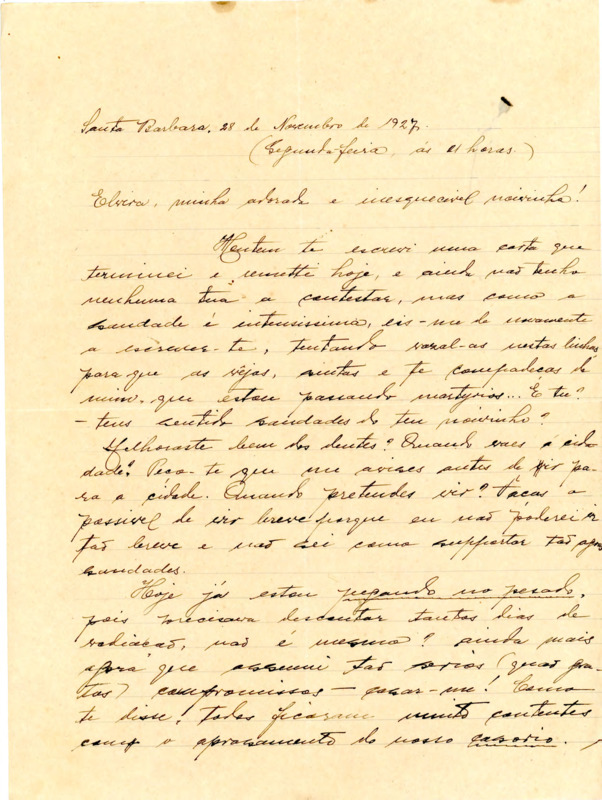 Santa Barbara, 28 de Novembro de 1927.
(Segunda-feira, ás 21 horas.)
Elvira, minha adorada e inesquecivel noivinha!
Hontem te escrevi uma carta que
terminei e remetti hoje, e ainda não tenho
nenhuma tua a contestar, mas como a
saudade é intensissima, eis-me de novamente
a escrever-te, tentando vazal-as nestas linhas
para que as vejas, sintas e te compadeças de
mim, que estou passando martyrios... E tu?
- tens sentido saudades do teu noivinho?
Melhoraste bem dos dentes? Quando vaes a cida-
dade? Peço-te que me avises antes de ir pa-
ra a cidade. Quando pretendes vir? Faças o
possivel de vir breve porque eu não poderei ir
tão breve e não sei como supportar tão
saudades.
Hoje já estou pegando no pesado,
pois precisava descontar tantos dias de
vadiação, não é mesmo? ainda mais
agora que assumi tão serios (quão gra-
tos) compromissos - casar-me! Como
te disse, todos ficaram muito contentes
com o aprasamento do nosso casorio.